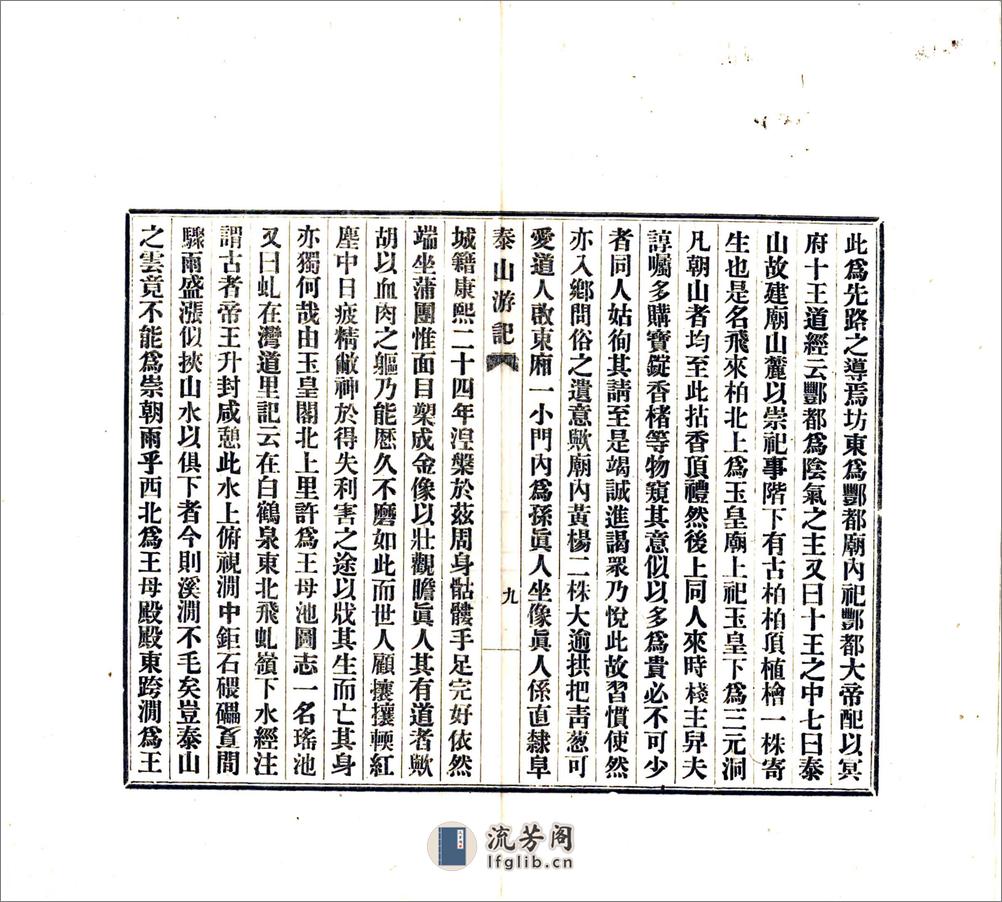 此爲先路之導焉坊東爲酆都廟內祀酆都大帝配以冥
府十王道經云酆都爲陰氣之主又曰十王之中七曰泰
山故建廟山麓以崇祀事階下有古柏柏頂植檜一株寄
生也是名飛來柏北上爲玉皇廟上祀玉皇下爲三元洞
凡朝山者均至此拈香頂禮然後上同人來時棧主舁夫
諄囑多購寶錠香楮等物窺其意似以多爲貴必不可少
者同人姑徇其請至是竭誠進謁眾乃悅此故習慣使然
亦入鄉問俗之遺意歟廟內黃楊二株大逾拱把靑葱可
愛道人啟東廂一小門內爲孫眞人坐像眞人係直隸阜
泰山游記
九
城籍康熙二十四年湼槃於茲周身骷髏手足完好依然
端坐蒲團惟面目槼成金像以壯觀瞻眞人其有道者歟
胡以血肉之軀乃能歷久不磨如此而世人顧攘攘輭紅
塵中日疲精敝神於得失利害之途以戕其生而亡其身
亦獨何哉由玉皇閣北上里許爲王母池圖志一名瑤池
又曰虬在灣道里記云在白鶴泉東北飛虬嶺下水經注
謂古者帝王升封咸憩此水上俯視澗中鉅石磈礧夏間
驟雨盛漲似挾山水以俱下者今則溪澗不毛矣豈泰山
之雲竟不能爲崇朝雨乎西北爲王母殿殿東跨澗爲王
流芳阁
lfglib.cn